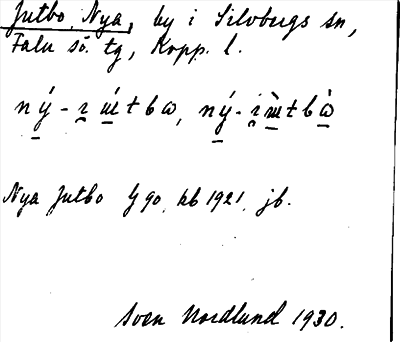 Jutbo, Nya, by i Silvbergs sn,
Falu sö. tg, Kopp. l.
Nya Jutbo ¼ 90, kb 1921, jb.
Sven Nordlund 1930.